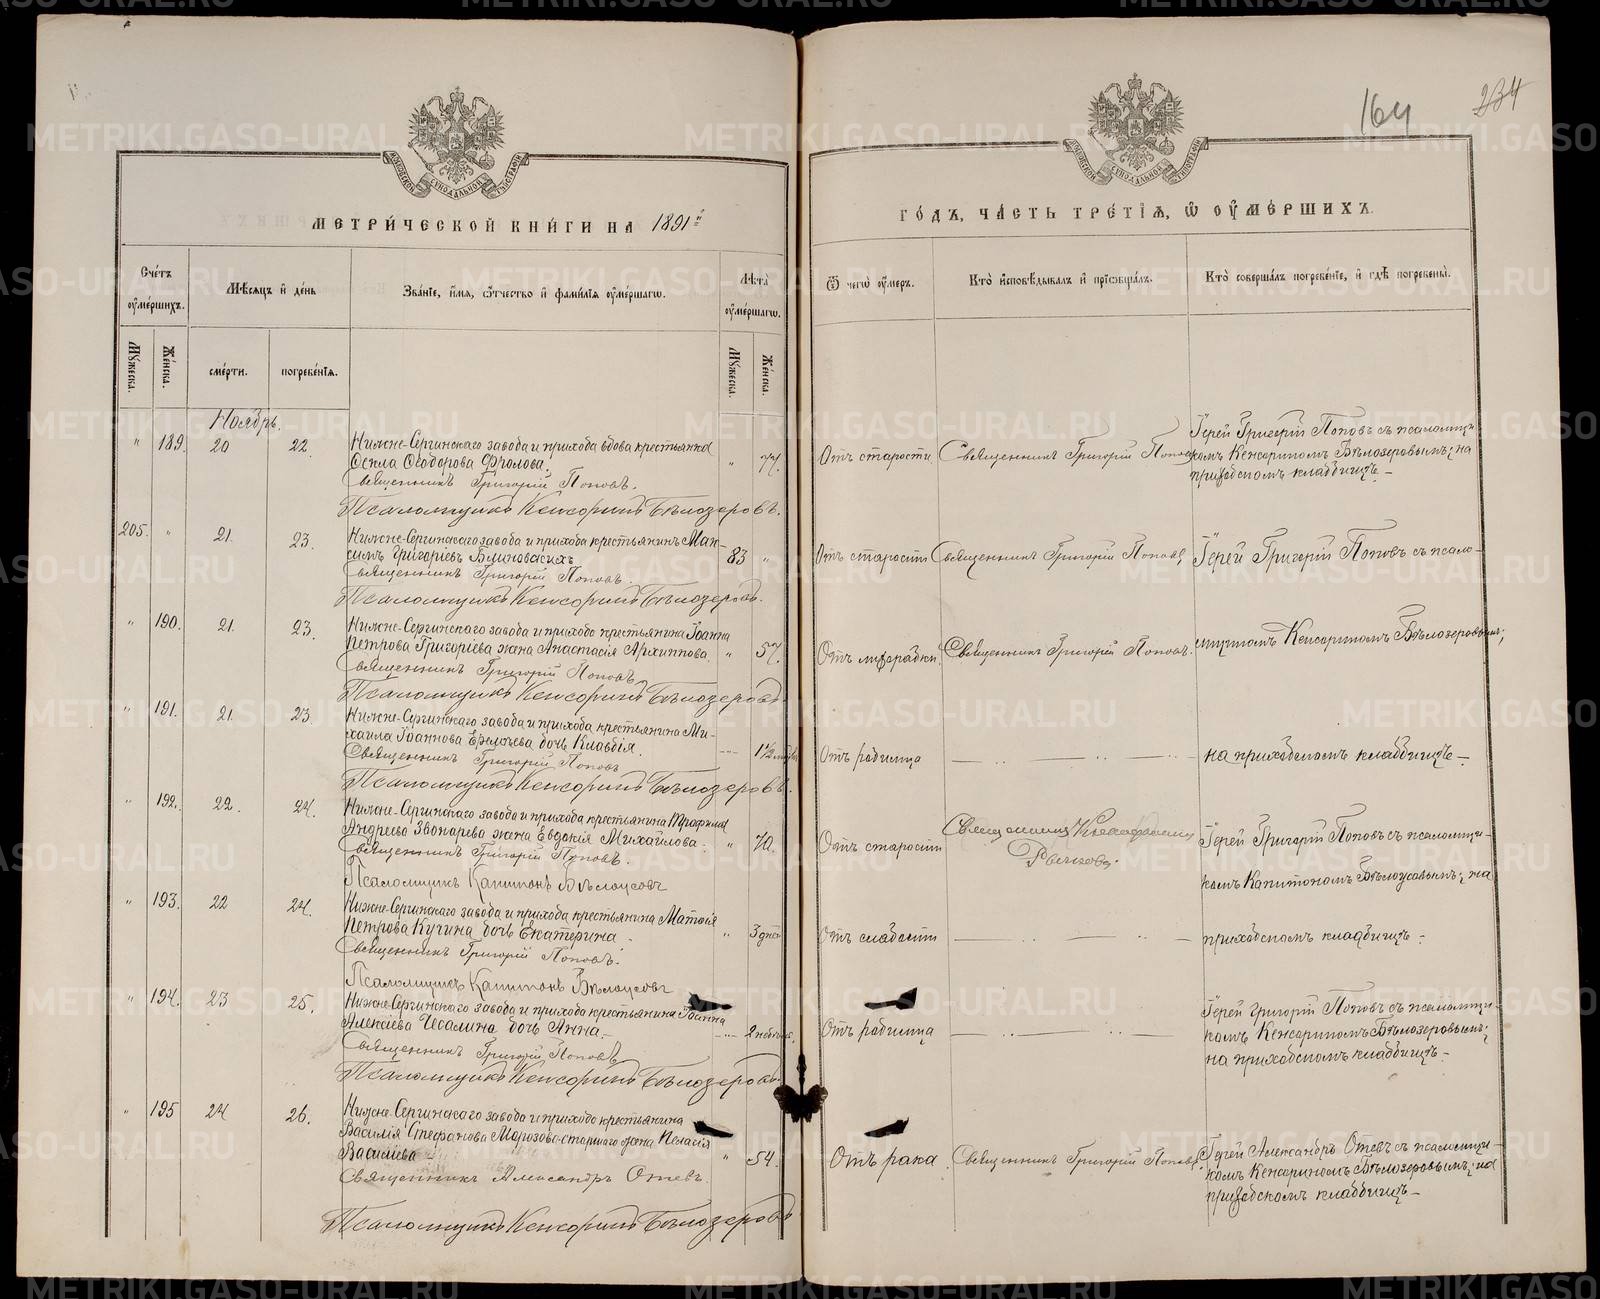 164
234
МОСКОВСКОЙ СѴНОДАЛЬНОЙ ТѴПОГРАФІИ
МОСКОВСКОЙ СѴНОДАЛЬНОЙ ТѴПОГРАФІИ
МЕТРИ́ЧЕСКОЙ КНИ́ГИ НА 1891й
ГО́ДЪ, ЧА́СТЬ ТРЕ́ТІѦ, Ѡ ОУМЕ́РШИХЪ.
Сче́тъ оумершихъ.
Мѣсяцъ и день
Зва́ніе, и́мя, о́тчество и фами́лія оуме́ршагѡ.
Лѣта оуме́ршагѡ.
Ѿ чегѡ оумеръ.
Кто̀ исповѣдывалъ и пріѡбща́лъ.
Кто̀ соверша́лъ погребе́ніе, и гдѣ погребены̀.
Мужеска.
Же́нска.
сме́рти.
погребе́нія.
Мужеска.
Же́нска.
Ноябрь.
" 189. 20 22. Нижне-Сергинскаго завода и прихода вдова крестьянка
Ѳекла Ѳеодорова Фролова. " 77.
Священникъ Григорій Поповъ.
Псаломщикъ Кенсоринъ Бѣлозеровъ.
Отъ старости Священникъ Григорій Поповъ
Іерей Григорій Поповъ съ псаломщи-
комъ Кенсориномъ Бѣлозеровымъ; на
приходскомъ кладбищѣ. –
205. " 21. 23. Нижне-Сергинскаго завода и прихода крестьянинъ Мак-
симъ Григоріевъ Блиновскихъ 83 "
Священникъ Григорій Поповъ.
Псаломщикъ Кенсоринъ Бѣлозеровъ.
Отъ старости Священникъ Григорій Поповъ, Іерей Григорій Поповъ съ псало-
" 190. 21. 23. Нижне-Сергинскаго завода и прихода крестьянина Іоанна
Петрова Григоріева жена Анастасія Архиппова. " 57.
Священникъ Григорій Поповъ
Псаломщикъ Кенсоринъ Бѣлозеровъ
Отъ лихорадки Священникъ Григорій Поповъ. мщикомъ Кенсориномъ Бѣлозеровымъ;
" 191. 21. 23. Нижне-Сергинскаго завода и прихода крестьянина Ми-
хаила Іоаннова дочь Клавдія. 1½
Священникъ Григорій Поповъ
Псаломщикъ Кенсоринъ Бѣлозеровъ.
Отъ родимца на приходскомъ кладбищѣ –
" 192. 22. 24. Нижне-Сергинскаго завода и прихода крестьянина Трофима
Андреева Звонарева жена Евдокія Михайлова. " 70.
Священникъ Григорій Поповъ.
Псаломщикъ Капитонъ Бѣлоусовъ
Отъ старости Священникъ
Іерей Григорій Поповъ съ псаломщи-
комъ Капитономъ Бѣлоусовымъ; на
" 193. 22 24. Нижне-Сергинскаго завода и прихода крестьянина Матѳія
Петрова Кучина дочь Екатерина " 3 дней
Священникъ Григорій Поповъ.
Псаломщикъ Капитонъ Бѣлоусовъ
Отъ слабости приходскомъ кладбищѣ –
" 194. 23 25. Нижне-Сергинскаго завода и прихода крестьянина Іоанна
Алексіева Чесалина дочь Анна. 2 недѣли.
Священникъ Григорій Поповъ
Псаломщикъ Кенсоринъ Бѣлозеровъ
Отъ родимца
Іерей Григорій Поповъ съ псаломщи-
комъ Кенсориномъ Бѣлозеровымъ;
на приходскомъ кладбищѣ –
" 195 24 26. Нижне-Сергинскаго завода и прихода крестьянина
Василія Стефанова Морозова-старшаго жена Пелагія
Васильева " 54.
Священникъ Александръ Отевъ.
Псаломщикъ Кенсоринъ Бѣлозеровъ
Отъ рака. Священникъ Григорій Поповъ.
Іерей Александръ Отевъ съ псаломщи-
комъ Кенсориномъ Бѣлозеровымъ; на
приходскомъ кладбищѣ –
METRIKI.GASO-URAL.RU